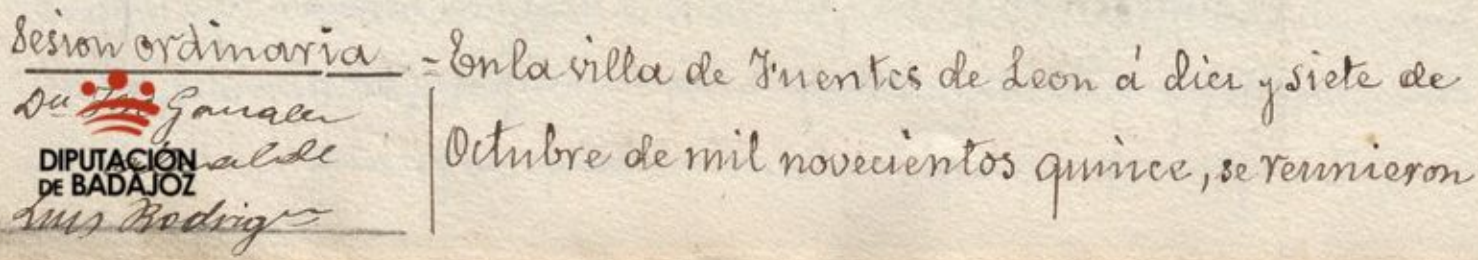 Sesion ordinaria
Dn José Gonzalez
DIPUTACIÓN
DE BADAJOZ
Luis Rodrigz
-En la villa de Fuentes de Leon á diez y siete de
Octubre de mil novecientos quince, se reunieron